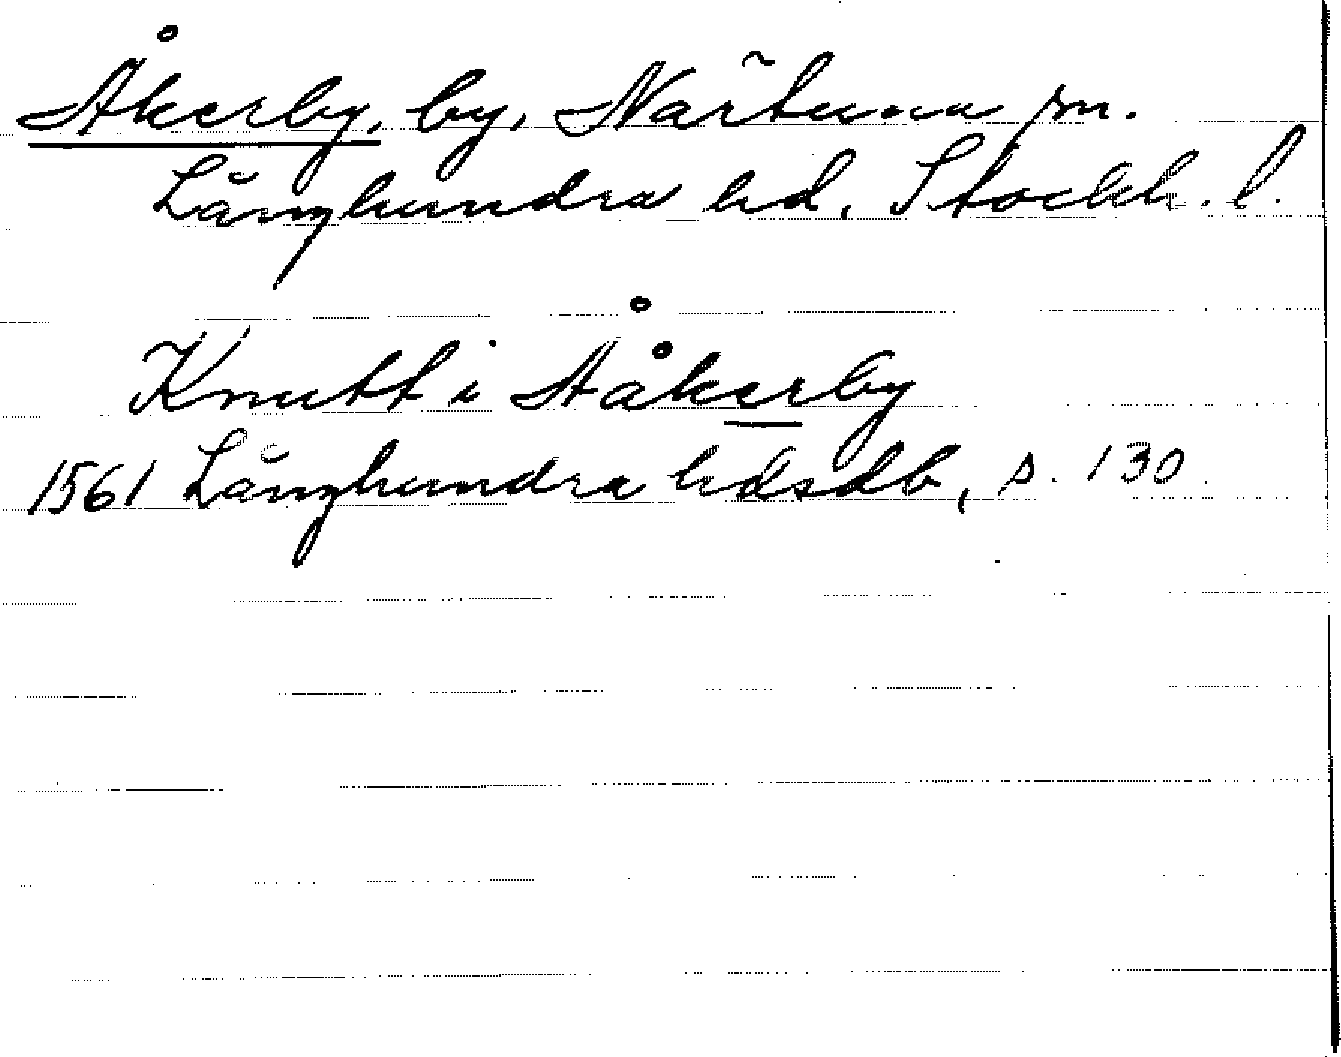 Åkerby, by, Närtuna sn.
Långhundra hd. Stockh. l.
Knutt i Ååkerby
1561 Långhundra hdsdb, s. 130